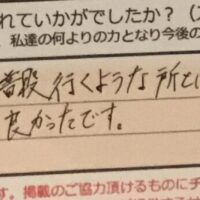 れていかがでしたか？（
私達の何よりの力となり今後の
普段行くような所と
良かったです。
す。掲載のご協力頂けるものにチ